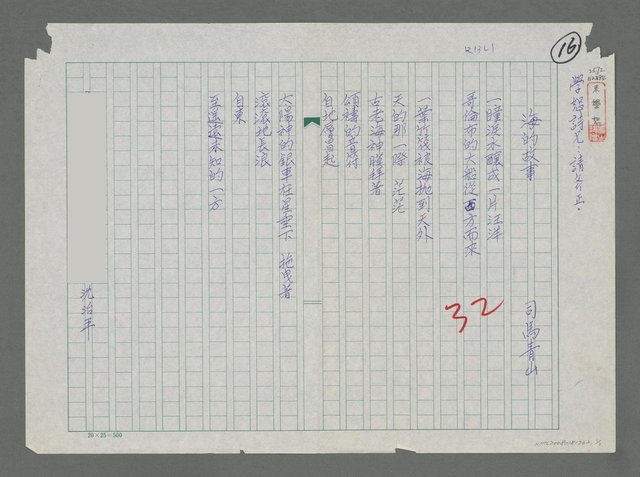 16
學恕詩兄：請斧正．
海的故事
司馬青山
一瞳淚水釀成一片汪洋
哥倫布的大船從西方而來
一葉竹筏被海拋到天外
天的那一際 茫茫
古老海神膜拜着
頌禱的音符
自北響起
太陽神的銀車在星垂下 拖曳着
滾滾地長浪
自東
至遙遠未知的一方
沈治年
32
20×25=500